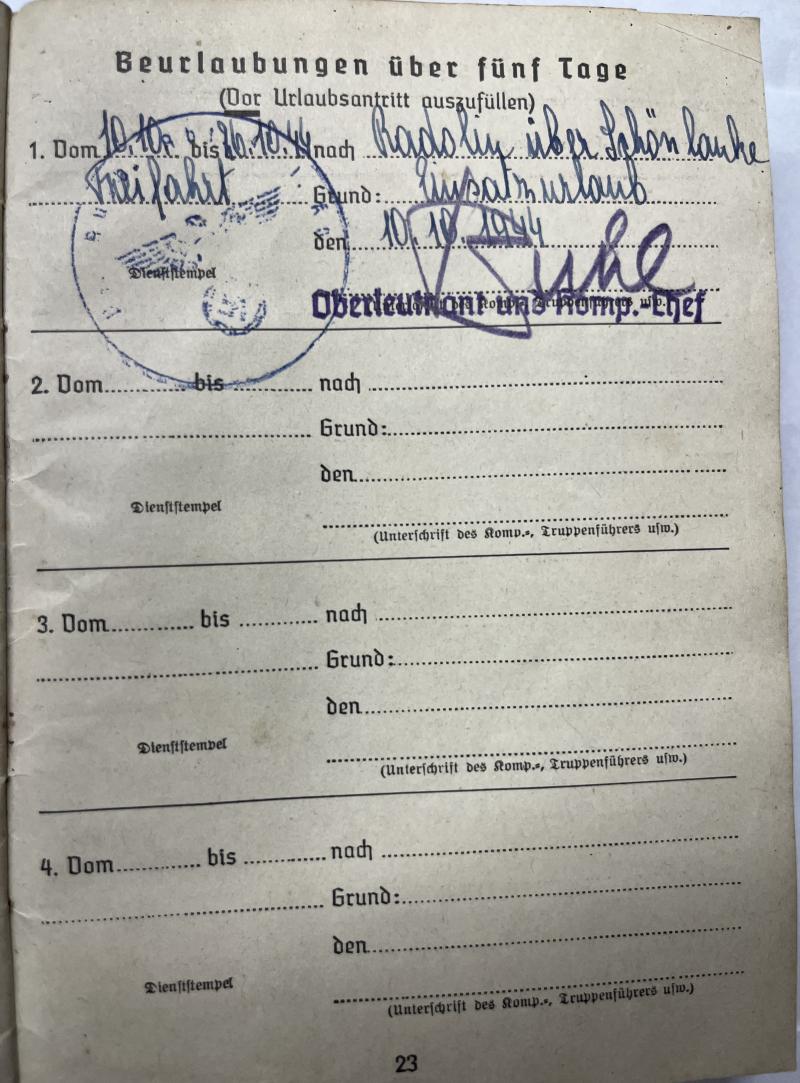 Beurlaubungen über fünf Tage
(Vor Urlaubsantritt auszufüllen)
1. Vom 10.10. bis 26.10.44 nach Radolin über Schönlanke
Freifahrt Grund: Einsatzurlaub
den 10.10.1944
Dienststempel
Oberleutnant und Komp.-Chef
2. Vom bis nach
Grund:
den
Dienststempel
(Unterschrift des Komp.=, Truppenführers usw.)
3. Vom bis nach
Grund:
den
Dienststempel
(Unterschrift des Komp.=, Truppenführers usw.)
4. Vom bis nach
Grund:
den
Dienststempel
(Unterschrift des Komp.=, Truppenführers usw.)
23